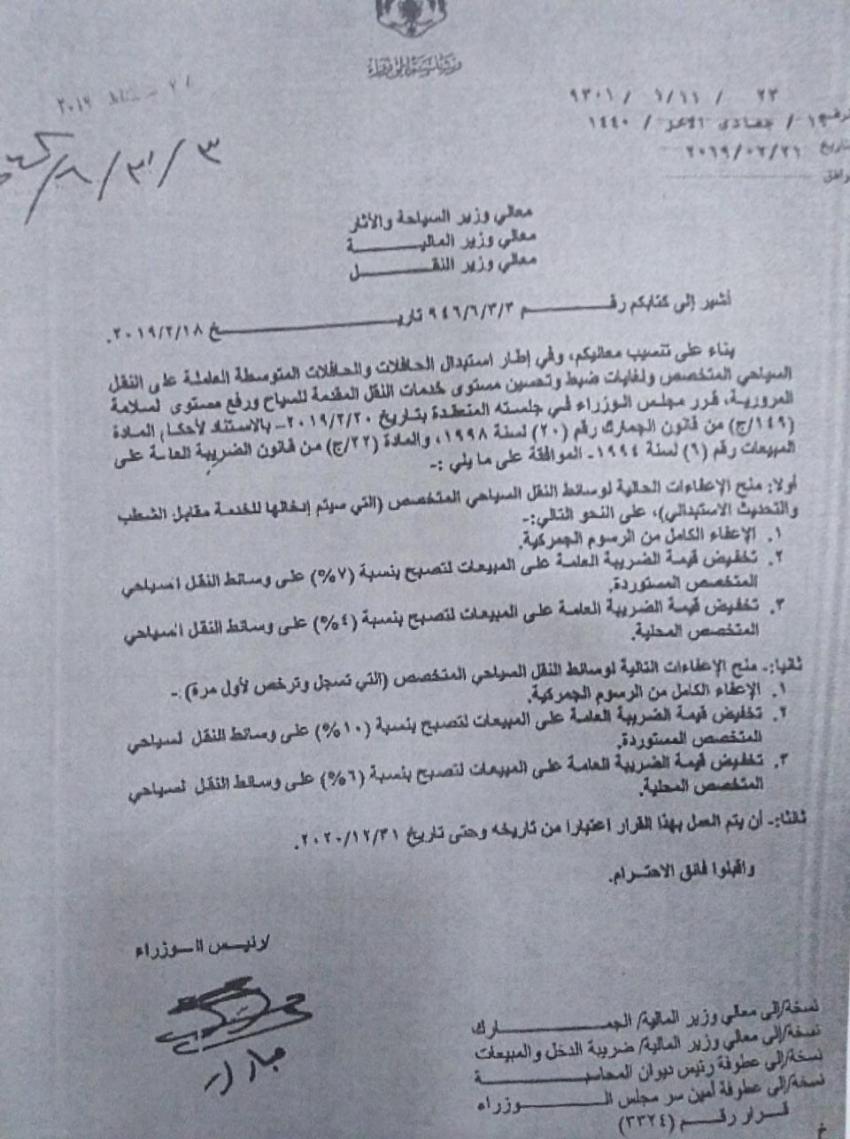 ٢٣ / ١١/١ / ٩٣٠١
١٦/ جمادى الآخر / ١٤٤٠
٢٠١٩/٠٢/٢١
٣/٣١/٨
معالي وزير السياحة والآثار
معالي وزير الماليـــــــــة
معالي وزير النقـــــــــل
أشير إلى كتابكم رقـــــــم ٩٤٦/٦/٣/٣ تاريـــــــــــــخ ٢٠١٩/٢/١٨.
بناء على تنسيب معاليكم، وفي إطار استبدال الحافلات والحافلات المتوسطة العاملة على النقل
السياحي المتخصص ولغايات ضبط وتحسين مستوى خدمات النقل المقدمة للسياح ورفع مستوى لسلامة
المرورية، قرر مجلس الوزراء في جلسته المنعقدة بتاريخ ٢٠١٩/٢/٢٠- بالاستناد لأحكام المادة
(١٤٩/ج) من قانون الجمارك رقم (٢٠) لسنة ١٩٩٨، والمادة (٢٢/ج) من قانون الضريبة العامة على
المبيعات رقم (٦) لسنة ١٩٩٤- الموافقة على ما يلي :-
أولا: منح الإعفاءات الحالية لوسائط النقل السياحي المتخصص (التي سيتم إدخالها للخدمة مقابل الشطب
والتحديث الاستبدالي)، على النحو التالي:-
١. الإعفاء الكامل من الرسوم الجمركية.
٢. تخفيض قيمة الضريبة العامة على المبيعات لتصبح بنسبة (٧%) على وسائط النقل السياحي
المتخصص المستوردة.
٣. تخفيض قيمة الضريبة العامة على المبيعات لتصبح بنسبة (٤%) على وسائط النقل السياحي
المتخصص المحلية.
ثانيا:- منح الإعفاءات التالية لوسائط النقل السياحي المتخصص (التي تسجل وترخص لأول مرة) :-
١. الإعفاء الكامل من الرسوم الجمركية.
٢. تخفيض قيمة الضريبة العامة على المبيعات لتصبح بنسبة (١٠%) على وسائط النقل لسياحي
المتخصص المستوردة.
٣. تخفيض قيمة الضريبة العامة على المبيعات لتصبح بنسبة (٦%) على وسائط النقل لسياحي
المتخصص المحلية.
ثالثا:- أن يتم العمل بهذا القرار اعتبارا من تاريخه وحتى تاريخ ٢٠٢٠/١٢/٣١.
واقبلوا فائق الاحتـــرام.
/رئيـــس الـــوزراء
نسخة/إلى معالي وزير المالية/ الجمـــــــــــارك
نسخة/إلى معالي وزير المالية/ ضريبة الدخل والمبيعات
نسخة/إلى عطوفة رئيس ديوان المحاسبـــــــــــة
نسخة/إلى عطوفة أمين سر مجلس الـــــــــوزراء
قـــرار رقـــم (٣٣٢٤)